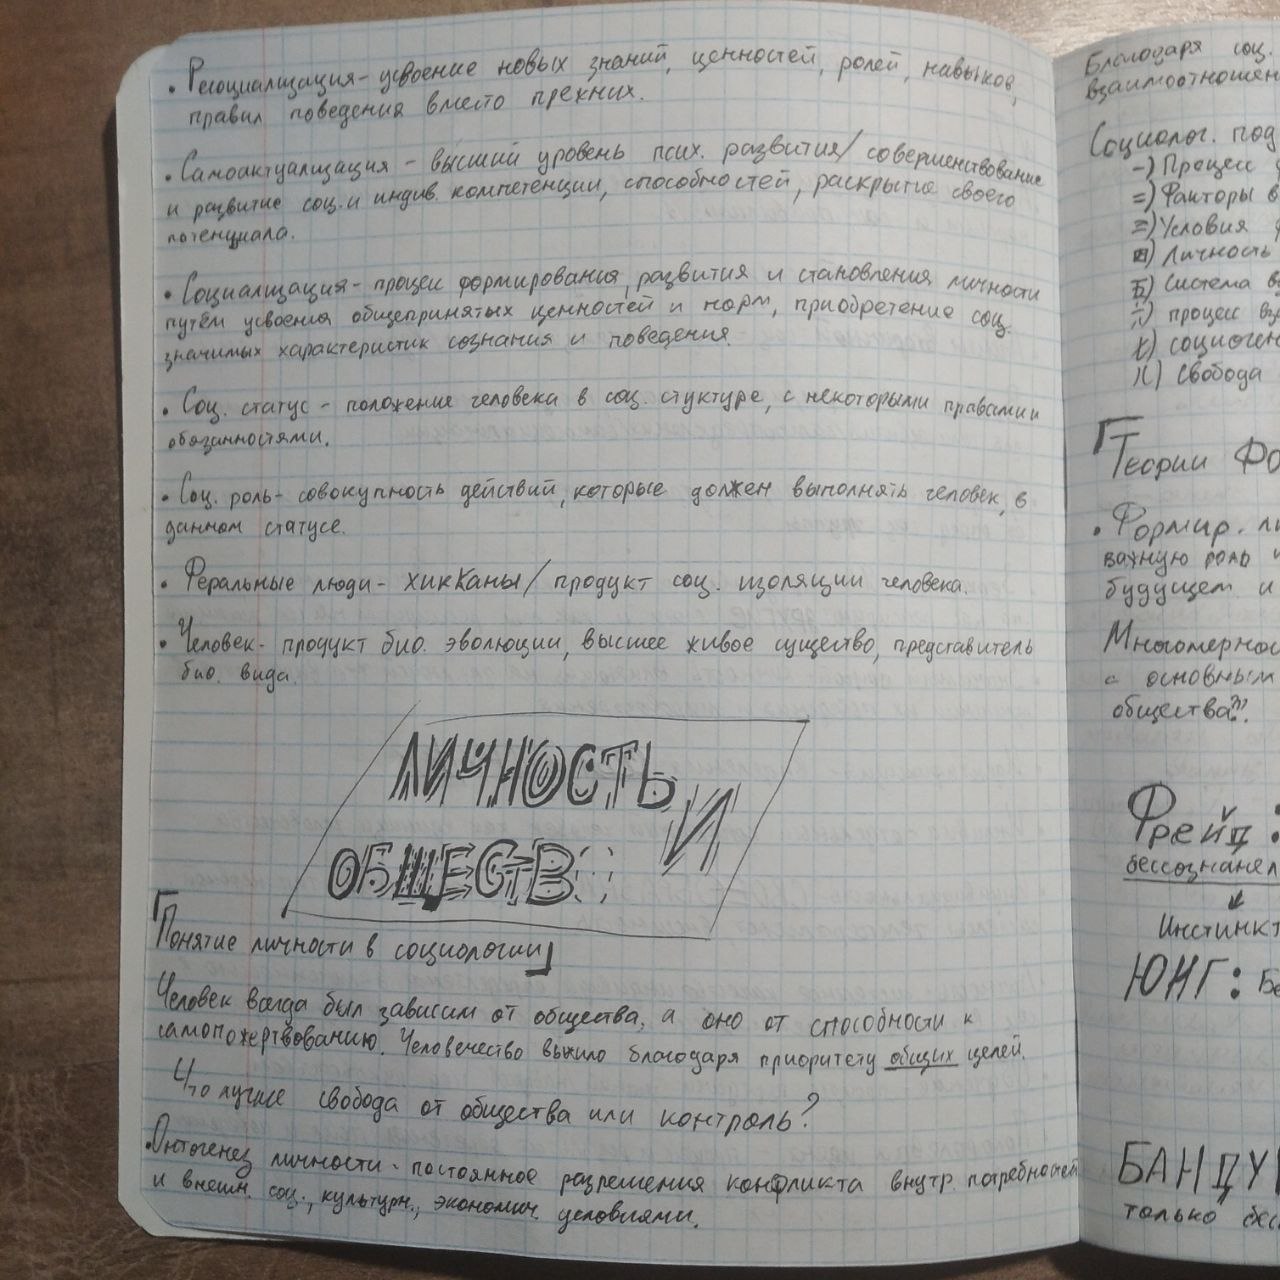 • Ресоциализация- усвоение новых знаний, ценностей, ролей, навыков,
правил поведения вместо прежних.
• Самоактуализация - высший уровень псих. развития/совершенствование
и развитие соц. и индив. компетенции, способностей, раскрытие своего
потенциала.
• Социализация- процесс формирования, развития и становления личности
путём усвоения общепринятых ценностей и норм, приобретение соц.
значимых характеристик сознания и поведения.
• Соц. статус - положение человека в соц. стуктуре, с некоторыми правами и
обязанностями.
• Соц. роль- совокупность действий, которые должен выполнять человек, в
данном статусе.
• Феральные люди- хикканы/ продукт соц. изоляции человека.
• Человек- продукт био. эволюции, высшее живое существо, представитель
био. вида.
ЛИЧНОСТЬ
И
ОБЩЕСТВО
Понятие личности в социологии
Человек всегда был зависим от общества, а оно от способности к
самопожертвованию. Человечество выжило благодаря приоритету общих целей.
Что лучше свобода от общества или контроль?
• Онтогенез личности- постоянное разрешения конфликта внутр. потребностей
и внешн. соц., культурн., экономич. условиями.
Благодаря соц.
взаимоотношен
Социолог. под
-) Процесс
=) Факторы в
=) Условия
) Личность
) Система
) процесс вз
) социоген
) Свобода
Теории Фо
• Формир. ли
важную роль и
будущем и
Многомернос
с основным
общества?!
Фрейд:
бессознател
Инстинкт
ЮНГ: Бе
БАНДУ
только бес